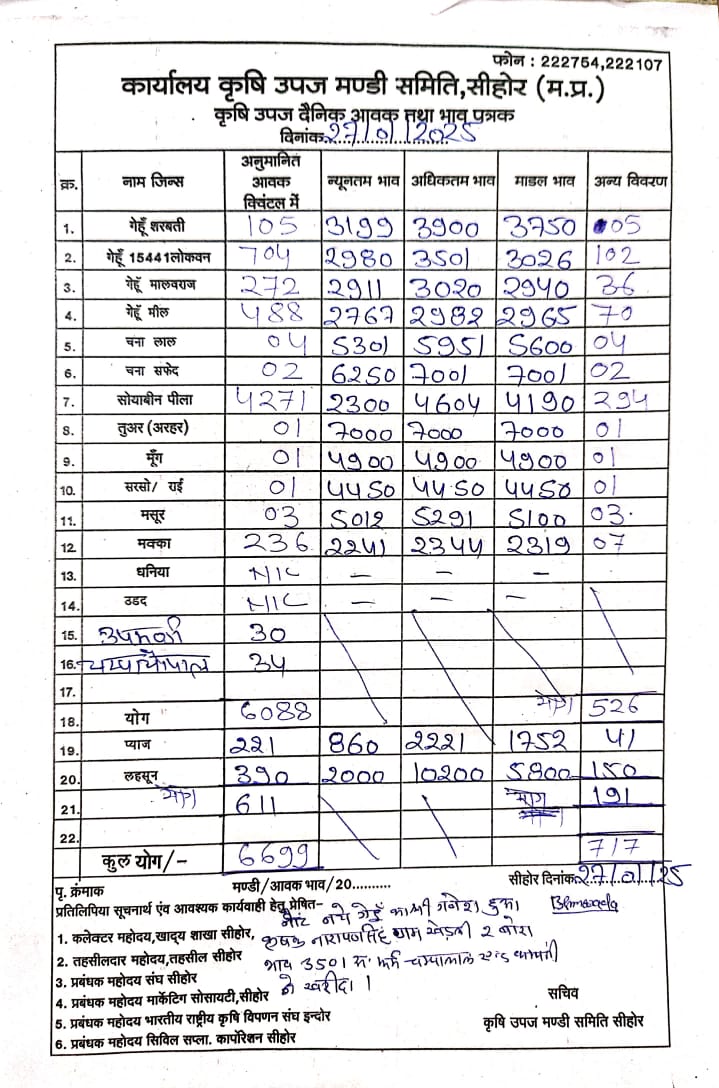 फोन : 222754,222107
कार्यालय कृषि उपज मण्डी समिति,सीहोर (म.प्र.)
कृषि उपज दैनिक आवक तथा भाव पत्रक
दिनांक 27/01/2025
क्र. नाम जिन्स अनुमानित आवक क्विंटल में न्यूनतम भाव अधिकतम भाव माडल भाव अन्य विवरण
1. गेहूँ शरबती 105 3199 3900 3750 05
2. गेहूँ 15441लोकवन 704 2980 3501 3026 102
3. गेहूँ मालवराज 272 2911 3020 2940 36
4. गेहूँ मील 488 2767 2982 2965 70
5. चना लाल 04 5301 5951 5600 04
6. चना सफेद 02 6250 7001 7001 02
7. सोयाबीन पीला 4271 2300 4604 4190 294
8. तुअर (अरहर) 01 7000 7000 7000 01
9. मूँग 01 4900 4900 4900 01
10. सरसो/ राई 01 4450 4450 4450 01
11. मसूर 03 5012 5291 5100 03
12. मक्का 236 2241 2344 2319 07
13. धनिया NIL — — —
14. उडद NIL — — —
15. 30
16. 34
17.
18. योग 6088 योग 526
19. प्याज 221 860 2221 1752 41
20. लहसून 390 2000 10200 5800 150
21. योग 611 योग 191
22.
कुल योग/- 6699 717
पृ. क्रंमाक मण्डी/आवक भाव/20.......... सीहोर दिनांक 27/01/25
प्रतिलिपिया सूचनार्थ एंव आवश्यक कार्यवाही हेतु प्रेषित–
नोट नये गेहूँ का श्री गनेश
1. कलेक्टर महोदय,खादय शाखा सीहोर,
कृषक नारायणसिंह ग्राम 2 बोरा
2. तहसीलदार महोदय,तहसील सीहोर
भाव 3501 फर्म चम्पालाल एण्ड कम्पनी
3. प्रबंधक महोदय संघ सीहोर
ने खरीदा ।
4. प्रबंधक महोदय मार्केटिग सोसायटी,सीहोर
सचिव
5. प्रबंधक महोदय भारतीय राष्ट्रीय कृषि विपणन संघ इन्दोर
कृषि उपज मण्डी समिति सीहोर
6. प्रबंधक महोदय सिविल सप्ला. कार्पोरेशन सीहोर